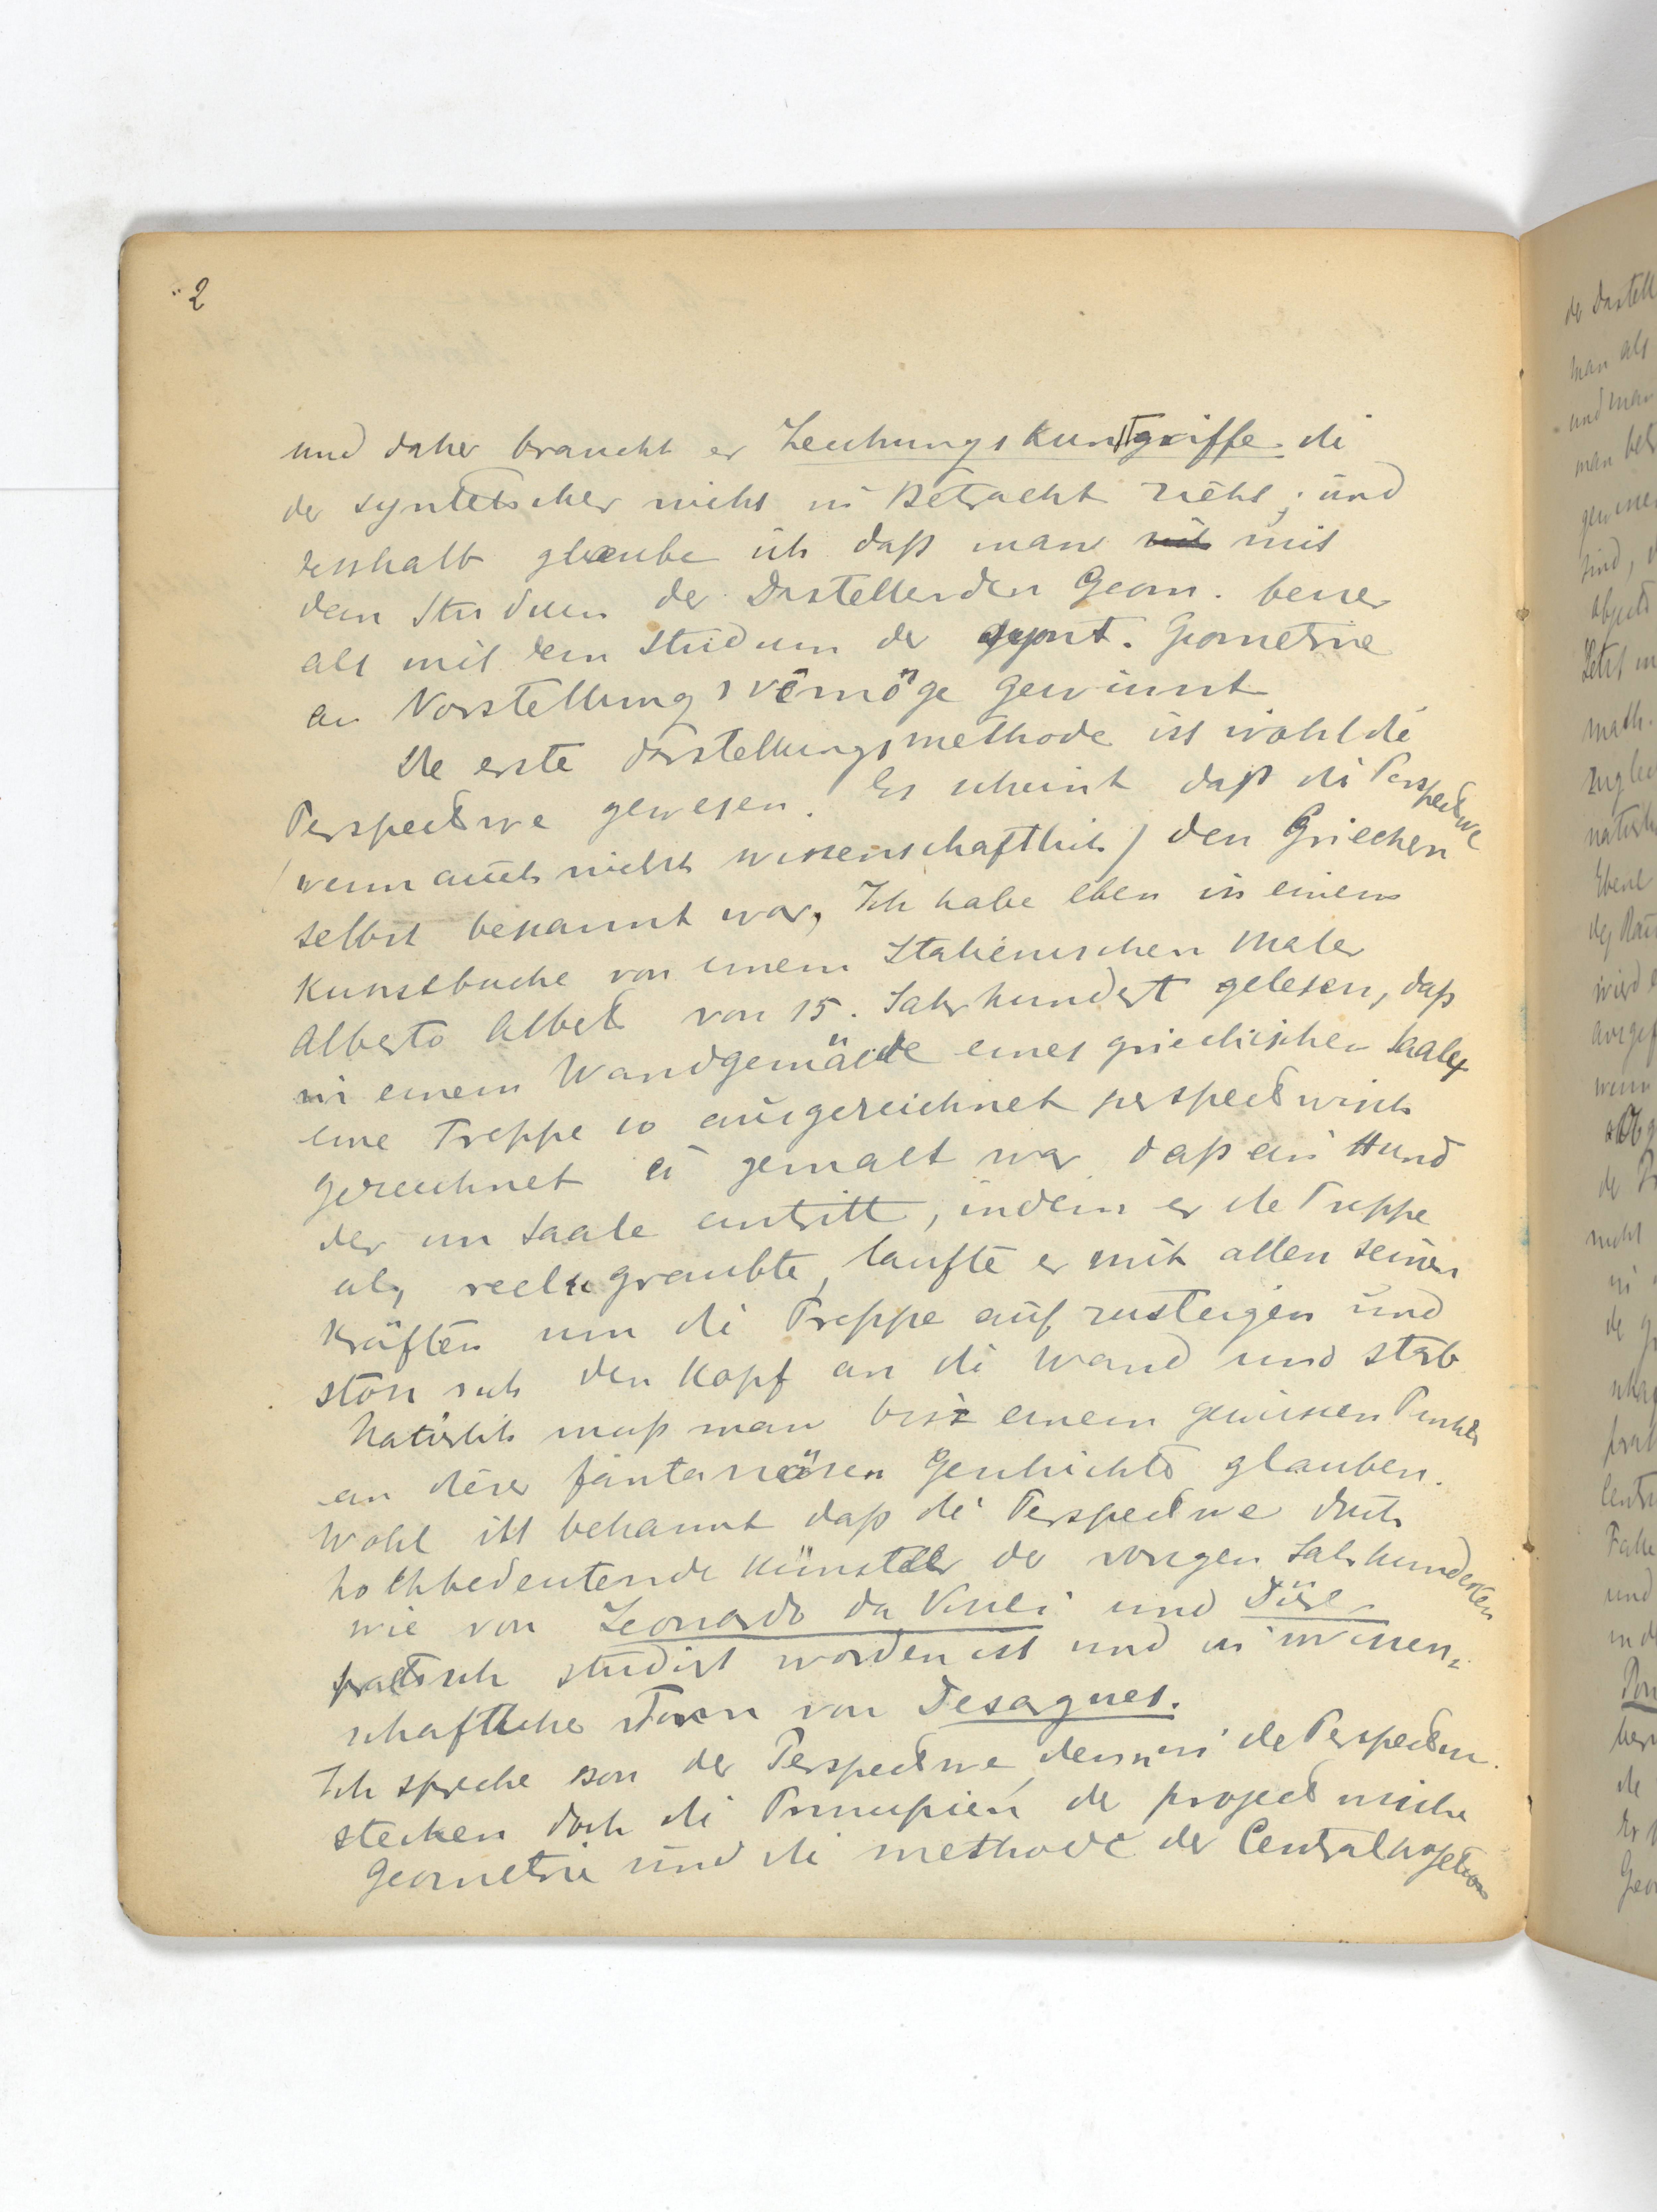 2
und daher braucht er Zeichungskunstgriffe die
der syntetischer nicht in Betracht zieht; und
desshalb glaube ich daß man mit
dem Studium der Darstellenden Geom. besser
als mit dem Studium der synt. Geometrie
an Vorstellungsvermöge gewinnt
Die erste Darstellungsmethode ist wohl die
Perspective gewesen. Es scheint daß die Perspective
(wenn auch nicht wissenschaftlich) den Griechen
selbst bekannt war, Ich habe eben in einem
Kunstbuche von einem Italienischen Maler
Alberto Alberti von 15. Jahrhundert gelesen, daß
in einem Wandgemälde eines griechischen Saales
eine Treppe so ausgezeichnet perspectivisch
gezeichnet u gemalt war daß ein Hund
der im Saale eintritt, indem er die Treppe
als reele graubte, laufte er mit allen seinen
Kräften um die Treppe aufzusteigen und
stoss sich den Kopf an die Wand und starb
Natürlich muß man bis z einem gewissen Punkte
an dieser fantasieösen Geschichte glauben.
Wohl ist bekannt daß die Perspective durch
hochbedeutende Künstler der vorigen Jahrhunderten
wie von Leonardo da Vinci und Dürer
practisch studirt worden ist und in wissen-
schaftlicher Form von Desargues.
Ich spreche von der Perspective, denn in die Perspective
stecken doch die Principien der projectivische
Geometrie und die methode der Centralprojetion